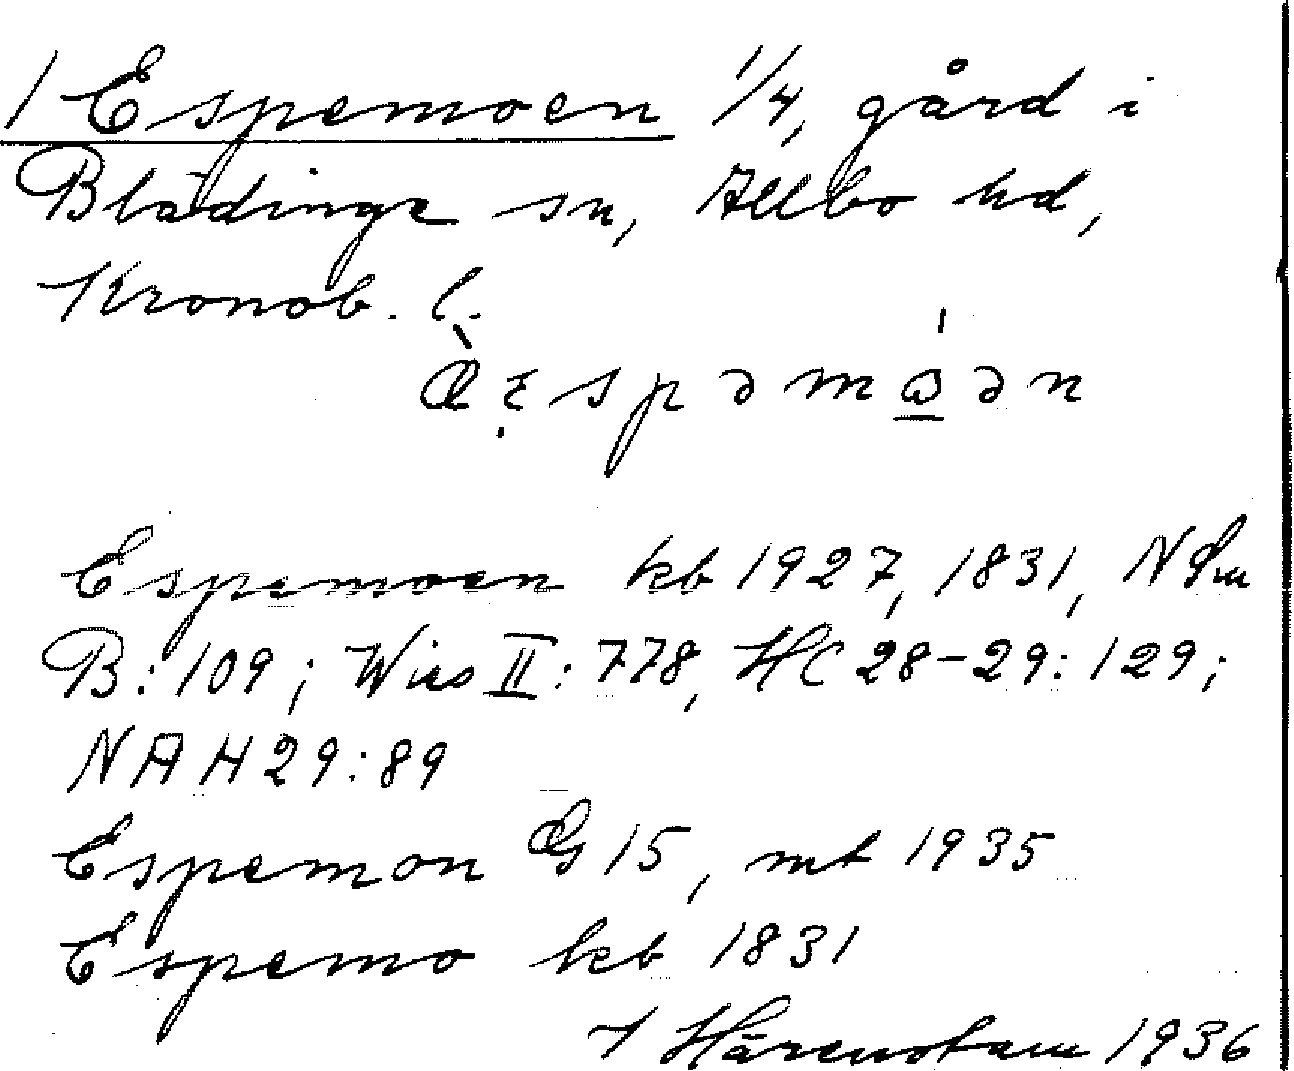 1 Espemoen 1/4, gård i
Blädinge sn, Allbo hd,
Kronob. l.
Espemoen kb 1927, 1831, N Sm
B: 109; Wies II: 778, HC 28-29: 129;
NAH 29: 89
Espemon G 15, mt 1935
Espemo kb 1831
1936